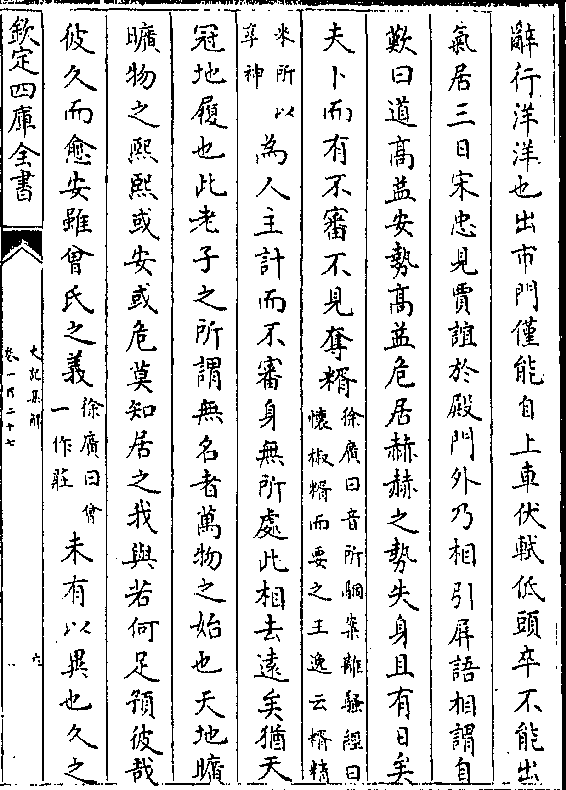 辭行洋洋也出市門僅能自上車伏軾低頭卒不能出
氣居三日宋忠見賈誼於殿門外乃相引屏語相謂自
歎曰道高益安勢高益危居赫赫之勢失身且有日矣
夫卜而有不審不見奪糈徐廣曰音所駰案離騷經曰懷椒糈而要之王逸云糈精
米所以享神為人主計而不審身無所處此相去遠矣猶天
冠地履也此老子之所謂無名者萬物之始也天地曠
曠物之熙熙或安或危莫知居之我與若何足預彼哉
彼久而愈安雖曾氏之義徐廣曰曾一作莊未有以異也久之
欽定四庫全書
史記集解
卷一百二十七
六